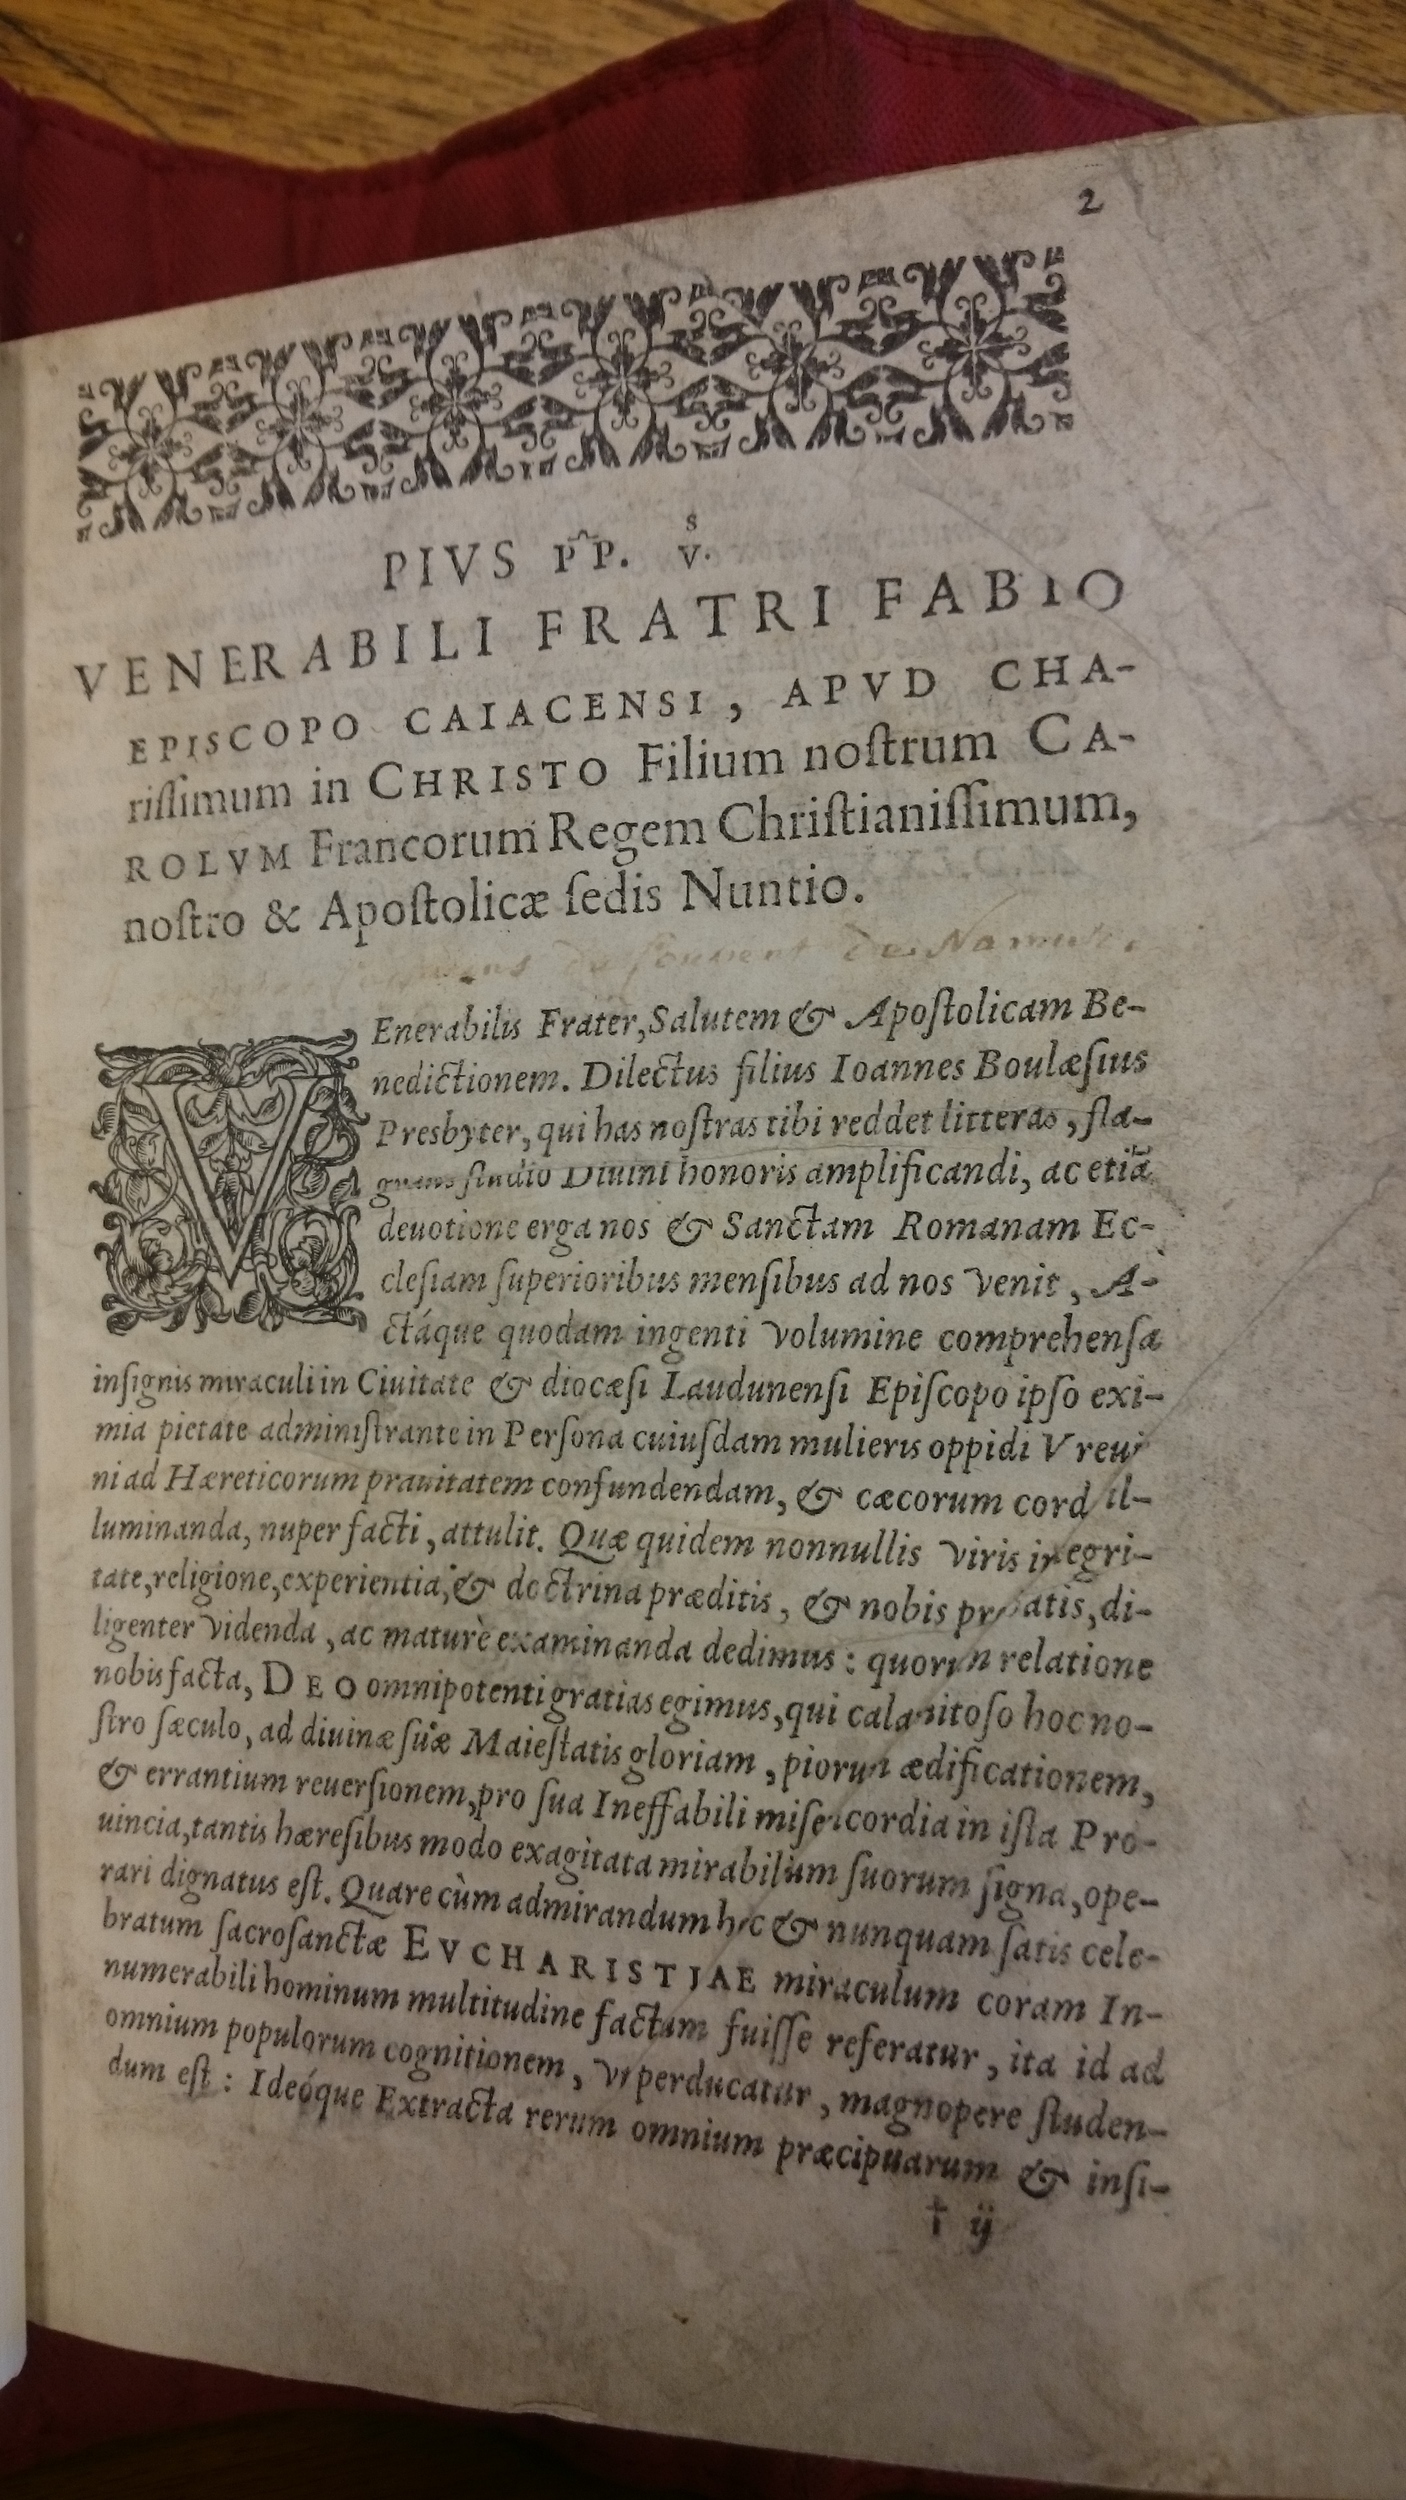 2
PIVS PP. V.
S
VENERABILI FRATRI FABIO
EPISCOPO CAIACENSI, APVD CHA-
rissimum in CHRISTO Filium nostrum CA-
ROLVM Francorum Regem Christianissimum,
nostro & Apostolicæ sedis Nuntio.
du Couvent de Namur.
VEnerabilis Frater, Salutem & Apostolicam Be-
nedictionem. Dilectus filius Ioannes Boulæsius
Presbyter, qui has nostras tibi reddet litteras, fla-
grans studio Diuini honoris amplificandi, ac etiã
deuotione erga nos & Sanctam Romanam Ec-
clesiam superioribus mensibus ad nos venit, A-
ctáque quodam ingenti volumine comprehensa
insignis miraculi in Ciuitate & diocæsi Laudunensi Episcopo ipso exi-
mia pietate administrante in Persona cuiusdam mulieris oppidi Vreui
ni ad Hæreticorum prauitatem confundendam, & cæcorum cord il-
luminanda, nuper facti, attulit. Quæ quidem nonnullis viris integri-
tate, religione, experientia, & doctrina præditis, & nobis probatis, di-
ligenter videnda, ac maturè examinanda dedimus: quorum relatione
nobis facta, DEO omnipotenti gratias egimus, qui calamitoso hoc no-
stro sæculo, ad diuinæ suæ Maiestatis gloriam, piorum ædificationem,
& errantium reuersionem, pro sua Ineffabili misericordia in ista Pro-
uincia, tantis hæresibus modo exagitata mirabilium suorum signa, ope-
rari dignatus est. Quare cùm admirandum hoc & nunquam satis cele-
bratum sacrosanctæ EVCHARISTIAE miraculum coram In-
numerabili hominum multitudine factum fuisse referatur, ita id ad
omnium populorum cognitionem, vt perducatur, magnopere studen-
dum est: Ideóque Extracta rerum omnium præcipuarum & insi-
† ij